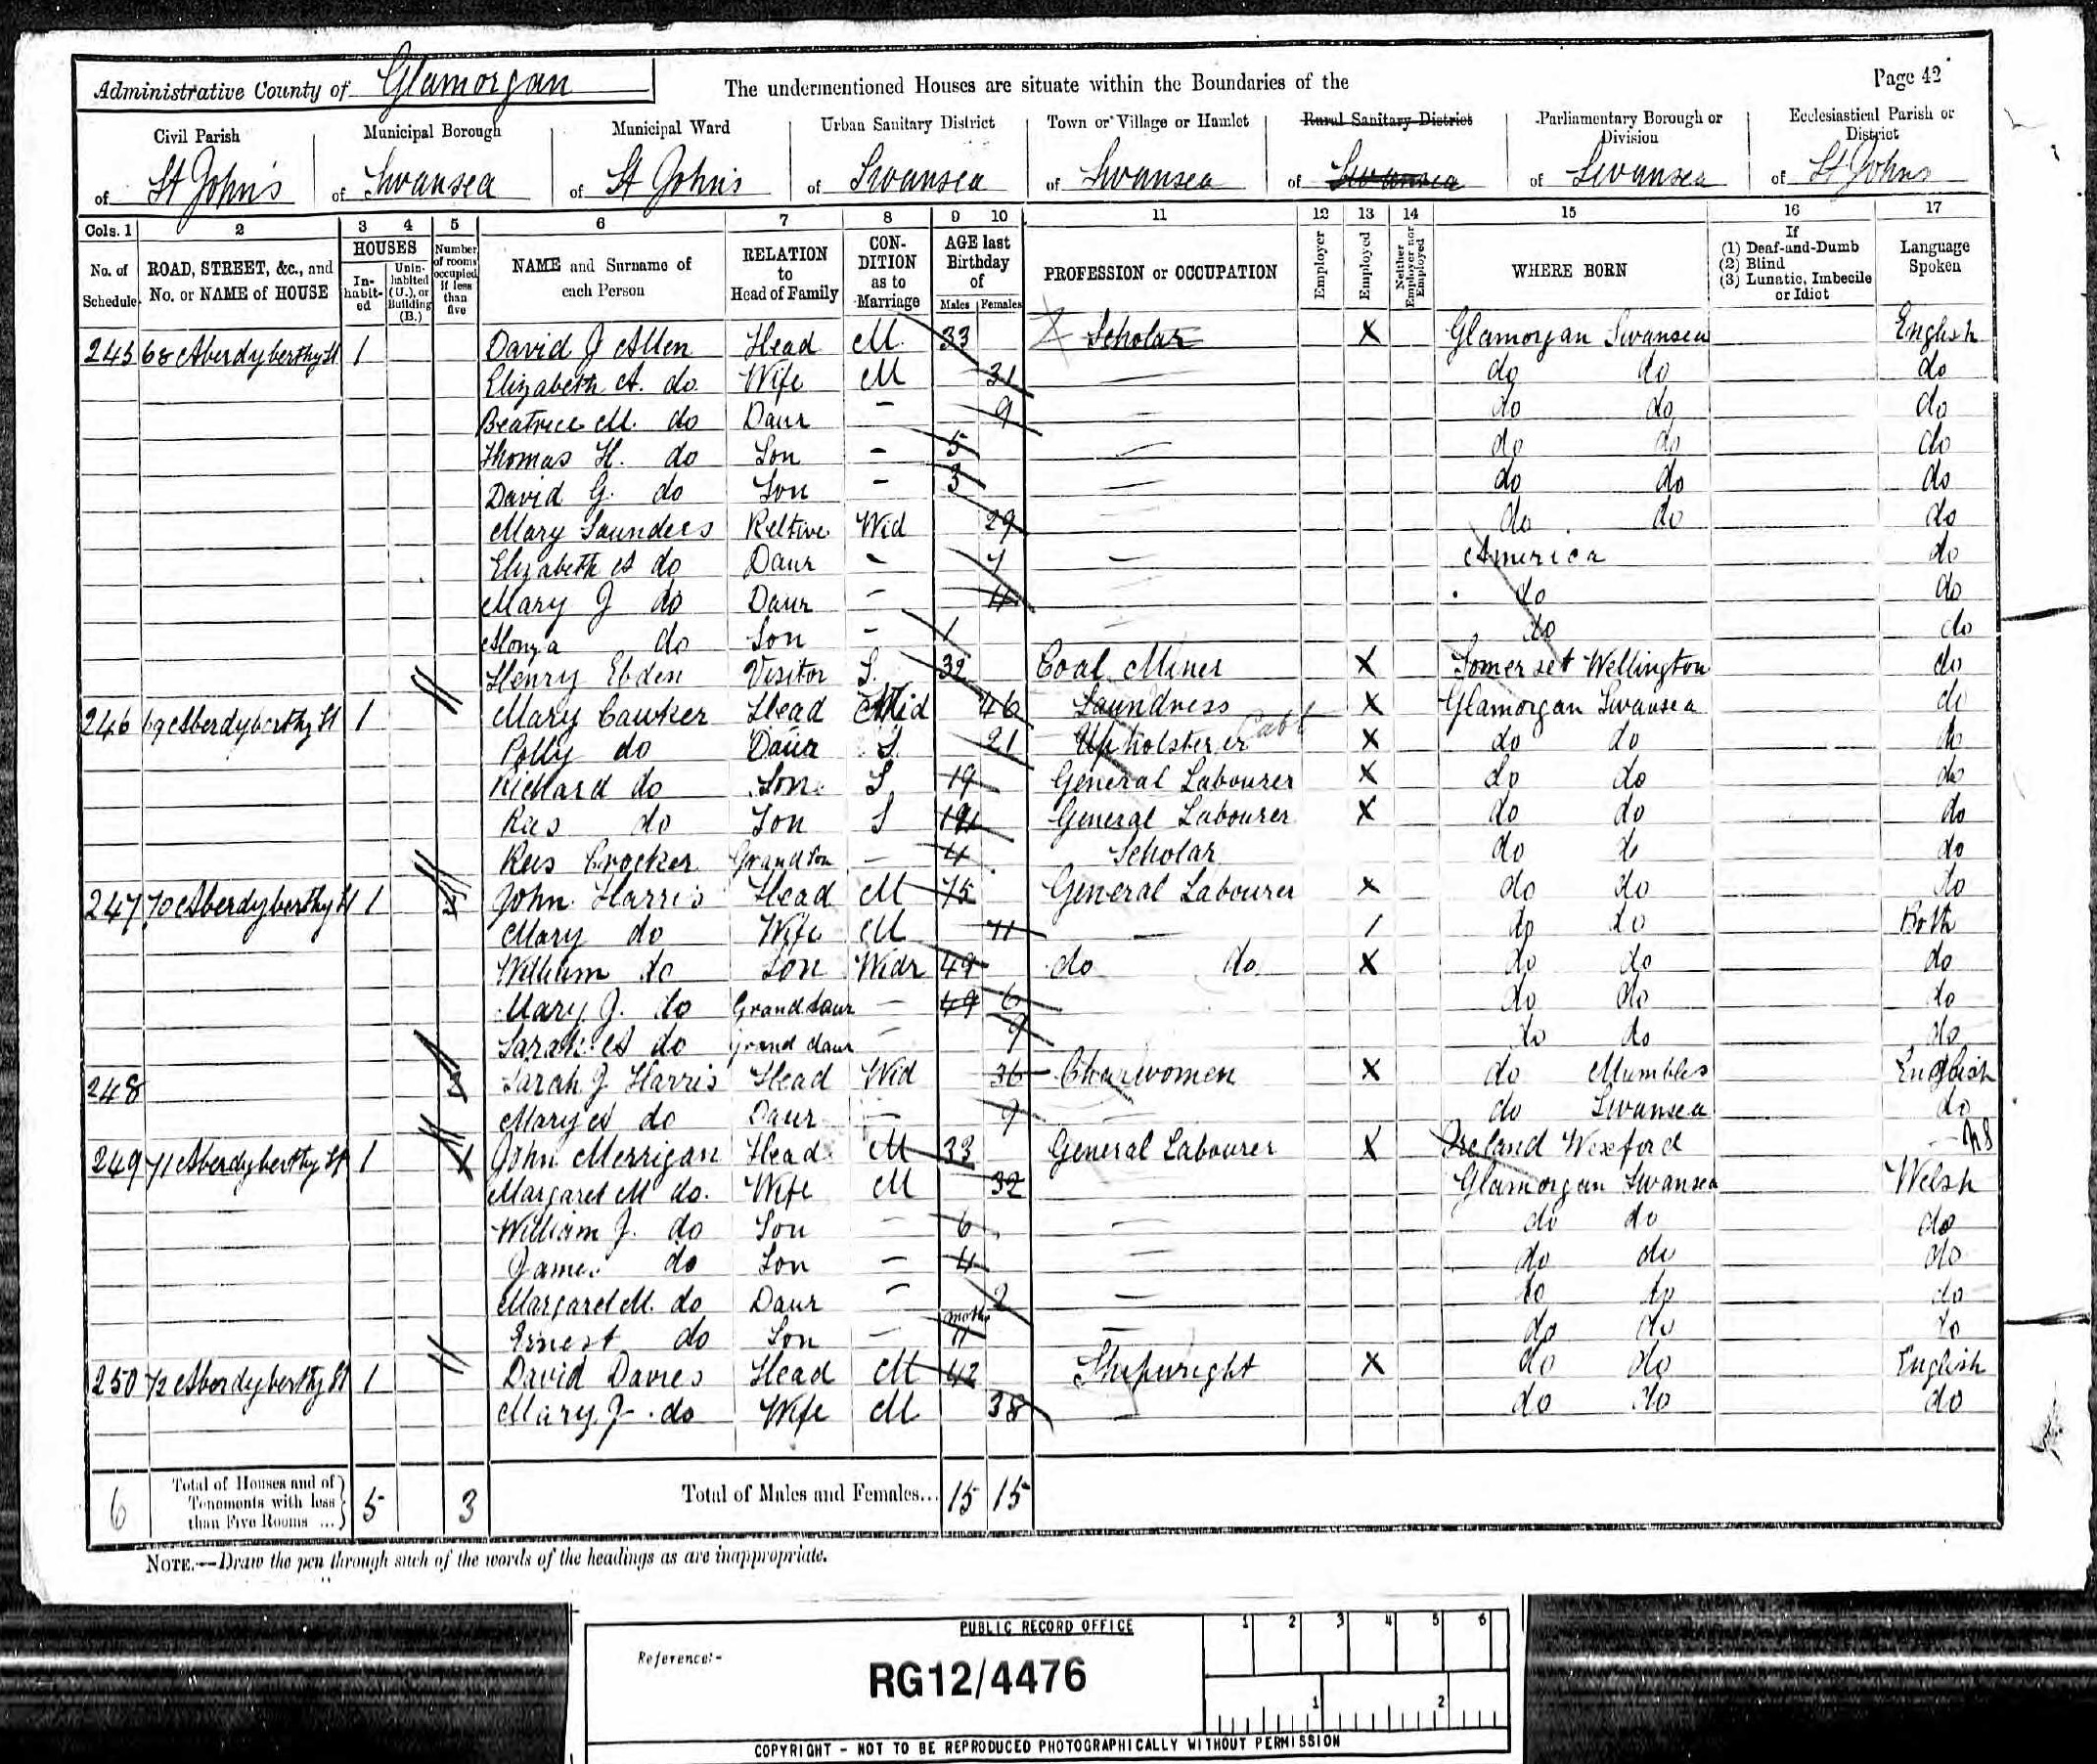 Administrative County of Glamorgan
The undermentioned Houses are situate within the Boundaries of the
Page 42
Civil Parish of St John's
Municipal Borough of Swansea
Municipal Ward of St John's
Urban Sanitary District of Swansea
Town or Village or Hamlet of Swansea
Rural Sanitary District of Swansea
Parliamentary Borough or Division of Swansea
Ecclesiastical Parish or District of St Johns
Cols. 1 2 3 4 5 6 7 8 9 10 11 12 13 14 15 16 17
No. of Schedule
ROAD, STREET, &c., and No. or NAME of HOUSE
HOUSES
Inhabited
Uninhabited (U.), or Building (B.)
Number of rooms occupied if less than five
NAME and Surname of each Person
RELATION to Head of Family
CONDITION as to Marriage
AGE last Birthday of
Males Females
PROFESSION or OCCUPATION
Employer
Employed
Neither Employer nor Employed
WHERE BORN
If (1) Deaf-and-Dumb (2) Blind (3) Lunatic, Imbecile or Idiot
Language Spoken
245 68 Aberdyberthy St 1 David J Allen Head M. 33 Scholar X Glamorgan Swansea English
Elizabeth A. do Wife M 31 — do do do
Beatrice M. do Daur - 9 — do do do
Thomas H. do Son - 5 — do do do
David G. do Son - 3 — do do do
Mary Saunders Reltive Wid 29 do do do
Elizabeth A do Daur - — America do
Mary J do Daur - 4 do do
Alonza do Son - 1 — do do
Henry Ebden Visitor S. 32 Coal Miner X Somerset Wellington do
246 69 Aberdyberthy St 1 Mary Cawker Head Wid 46 Laundress X Glamorgan Swansea do
Polly do Daur S. 21 Upholsterer X do do do
Richard do Son S 19 General Labourer X do do do
Rees do Son S General Labourer X do do do
Rees Crocker Grandson — 4 Scholar do do do
247 70 Aberdyberthy St 1 John Harris Head M 75 General Labourer X do do do
Mary do Wife M 71 — / do do Both
William do Son Widr 49 do do X do do do
Mary J. do Grand daur — 49 6 do do do
Sarah A do Grand daur — 9 do do do
248 3 Sarah J Harris Head Wid 36 Charwomen X do Mumbles English
Mary A do Daur — 9 do Swansea do
249 71 Aberdyberthy St 1 John Merrigan Head M 33 General Labourer X Ireland Wexford —
Margaret M do. Wife M 32 Glamorgan Swansea Welsh
William J. do Son — 6 — do do do
James do Son — 4 — do do do
Margaret M. do Daur — 2 — do do do
Ernest do Son — 11 mths — do do do
250 72 Aberdyberthy St 1 David Davies Head M 42 Shipwright X do do English
Mary J. do Wife M 38 — do do do
6 Total of Houses and of Tenements with less than Five Rooms ... 5 3 Total of Males and Females... 15 15
NOTE.—Draw the pen through such of the words of the headings as are inappropriate.
PUBLIC RECORD OFFICE
1 2 3 4 5 6
Reference:-
RG12/4476
1 2
COPYRIGHT - NOT TO BE REPRODUCED PHOTOGRAPHICALLY WITHOUT PERMISSION